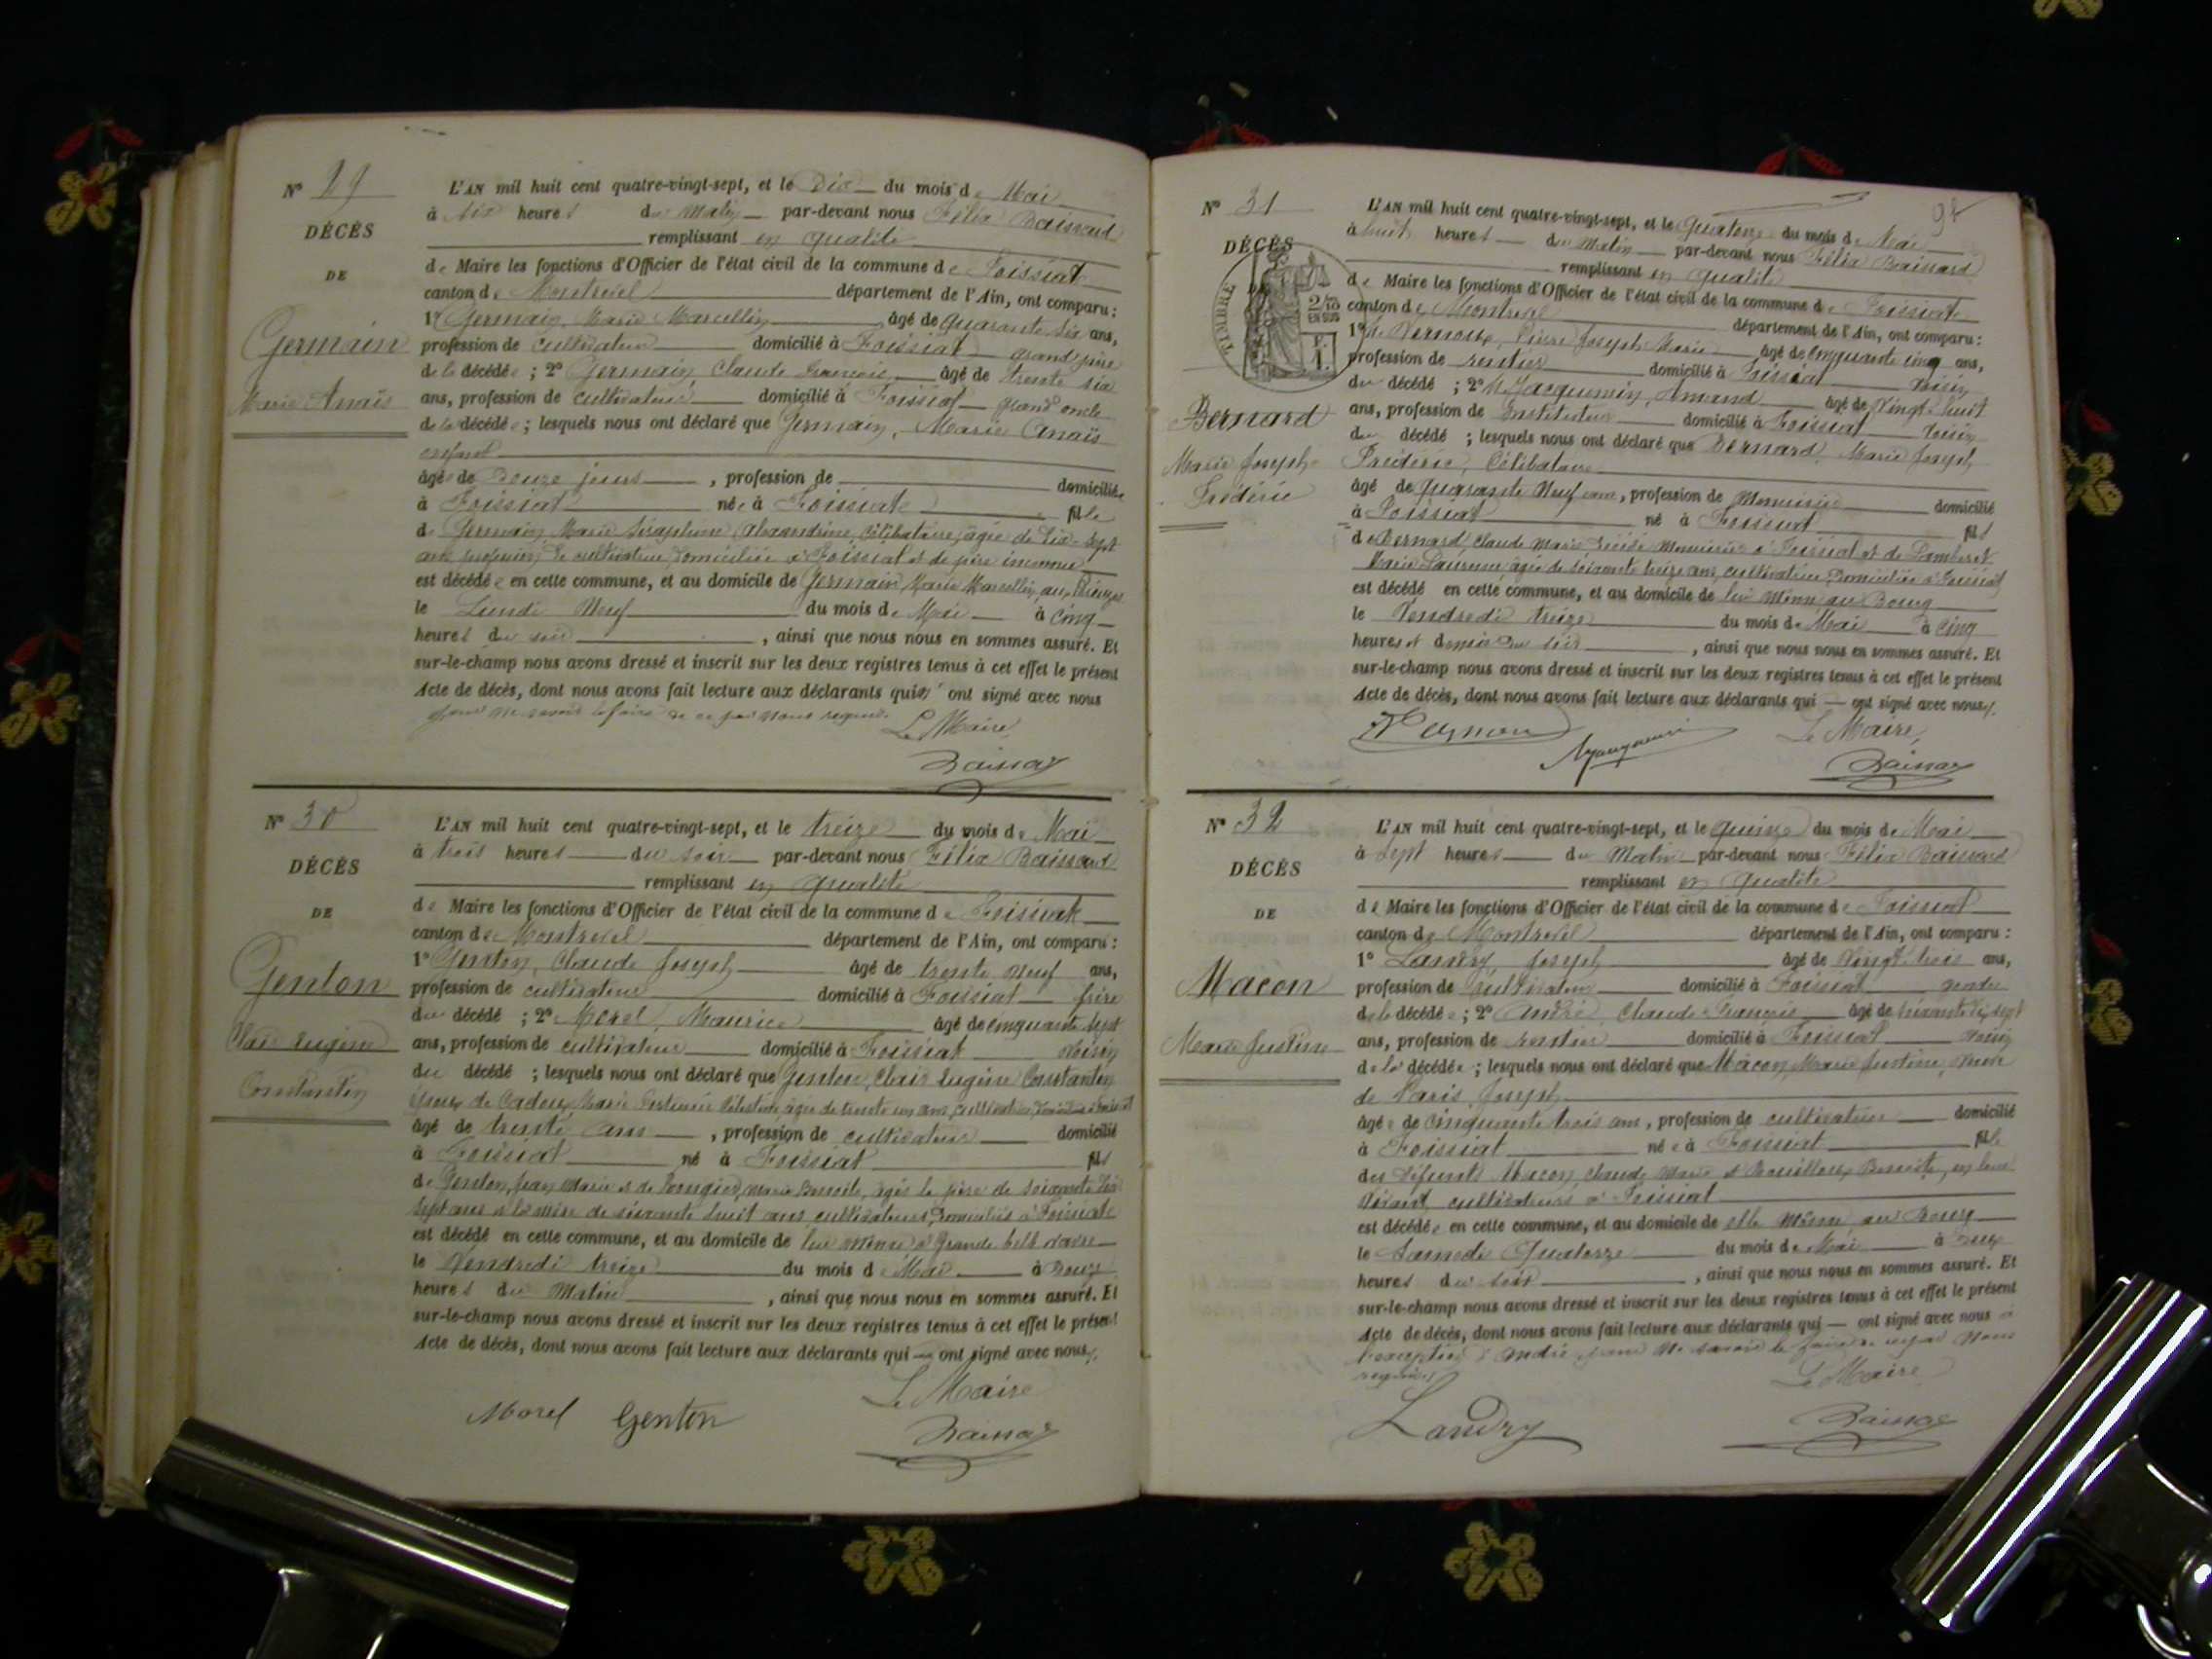 N° 29
DÉCÈS
DE
Germain
Marie Anaïs
L'AN mil huit cent quatre-vingt-sept, et le Dix du mois de Mai
à six heures du Matin par-devant nous Félix Baissard
remplissant en qualité
de Maire les fonctions d'Officier de l'état civil de la commune de Foissiat
canton de Montrevel département de l'Ain, ont comparu :
1° Germain, Marie Marcellin âgé de quarante six ans,
profession de cultivateur domicilié à Foissiat grand père
de la décédée ; 2° Germain, Claude François âgé de trente six
ans, profession de cultivateur domicilié à Foissiat grand oncle
de la décédée ; lesquels nous ont déclaré que Germain, Marie Anaïs
enfant
âgée de Douze jours , profession de domiciliée
à Foissiat née à Foissiat fille
de Germain, Marie Séraphine Alexandrine, Célibataire, âgée de dix-sept
ans, profession de cultivatrice, domiciliée à Foissiat et de père inconnu
est décédée en cette commune, et au domicile de Germain, Marie Marcellin, au
le Lundi Neuf du mois de Mai à cinq
heures du soir , ainsi que nous nous en sommes assuré. Et
sur-le-champ nous avons dressé et inscrit sur les deux registres tenus à cet effet le présent
Acte de décès, dont nous avons fait lecture aux déclarants qui n'ont signé avec nous
pour ne savoir le faire de ce par nous requis.
Le Maire,
Baissard
N° 30
DÉCÈS
DE
Genton
Clair Eugène
Constantin
L'AN mil huit cent quatre-vingt-sept, et le treize du mois de Mai
à trois heures du soir par-devant nous Félix Baissard
remplissant en qualité
de Maire les fonctions d'Officier de l'état civil de la commune de Foissiat
canton de Montrevel département de l'Ain, ont comparu :
1° Genton, Claude Joseph âgé de trente neuf ans,
profession de cultivateur domicilié à Foissiat frère
du décédé ; 2° Morel, Maurice âgé de cinquante sept
ans, profession de cultivateur domicilié à Foissiat voisin
du décédé ; lesquels nous ont déclaré que Genton, Clair Eugène Constantin
époux de Cadoux, Marie Célestine, âgée de trente un ans, cultivatrice, domiciliée à Foissiat
âgé de trente ans , profession de cultivateur domicilié
à Foissiat né à Foissiat fils
de Genton, Jean Marie et de Marie Benoite, âgés le père de soixante dix
sept ans et la mère de soixante huit ans, cultivateurs, domiciliés à Foissiat
est décédé en cette commune, et au domicile de lui même à Grande
le Vendredi treize du mois de Mai à Douze
heures du Matin , ainsi que nous nous en sommes assuré. Et
sur-le-champ nous avons dressé et inscrit sur les deux registres tenus à cet effet le présent
Acte de décès, dont nous avons fait lecture aux déclarants qui ont signé avec nous.
Le Maire
Morel Genton Baissard
98
N° 31
DÉCÈS
TIMBRE
2/10
EN SUS
Bernard
Marie Joseph
Frédéric
L'AN mil huit cent quatre-vingt-sept, et le Quatorze du mois de Mai
à huit heures du Matin par-devant nous Félix Baissard
remplissant en qualité
de Maire les fonctions d'Officier de l'état civil de la commune de Foissiat
canton de Montrevel département de l'Ain, ont comparu :
1° Pierre Joseph Marie âgé de cinquante cinq ans,
profession de rentier domicilié à Foissiat voisin
du décédé ; 2° Jacquemin, Amand âgé de Vingt huit
ans, profession de Instituteur domicilié à Foissiat voisin
du décédé ; lesquels nous ont déclaré que Bernard, Marie Joseph
Frédéric, Célibataire
âgé de quarante Neuf ans, profession de Menuisier domicilié
à Foissiat né à Foissiat fils
de Bernard Claude Marie, décédé Menuisier à Foissiat et de
âgée de soixante treize ans, cultivatrice, domiciliée à Foissiat
est décédé en cette commune, et au domicile de lui même au Bourg
le Vendredi treize du mois de Mai à cinq
heures et demie du soir , ainsi que nous nous en sommes assuré. Et
sur-le-champ nous avons dressé et inscrit sur les deux registres tenus à cet effet le présent
Acte de décès, dont nous avons fait lecture aux déclarants qui ont signé avec nous.
Le Maire,
Baissard
N° 32
DÉCÈS
DE
Mâcon
Marie Justine
L'AN mil huit cent quatre-vingt-sept, et le Quinze du mois de Mai
à Sept heures du Matin par-devant nous Félix Baissard
remplissant en qualité
de Maire les fonctions d'Officier de l'état civil de la commune de Foissiat
canton de Montrevel département de l'Ain, ont comparu :
1° Landry Joseph âgé de Vingt trois ans,
profession de cultivateur domicilié à Foissiat gendre
de la décédée ; 2° André, Claude François âgé de soixante dix sept
ans, profession de rentier domicilié à Foissiat voisin
de la décédée ; lesquels nous ont déclaré que Mâcon, Marie Justine, veuve
de Paris Joseph
âgée de cinquante trois ans, profession de cultivatrice domicilié
à Foissiat née à Foissiat fille
des défunts Mâcon, Claude Marie et Benoite, en leur
vivant cultivateurs à Foissiat
est décédée en cette commune, et au domicile de elle même au Bourg
le Samedi Quatorze du mois de Mai à deux
heures du soir , ainsi que nous nous en sommes assuré. Et
sur-le-champ nous avons dressé et inscrit sur les deux registres tenus à cet effet le présent
Acte de décès, dont nous avons fait lecture aux déclarants qui ont signé avec nous à
l'exception d'André pour ne savoir le faire de ce par Nous
requis.
Le Maire
Landry Baissard